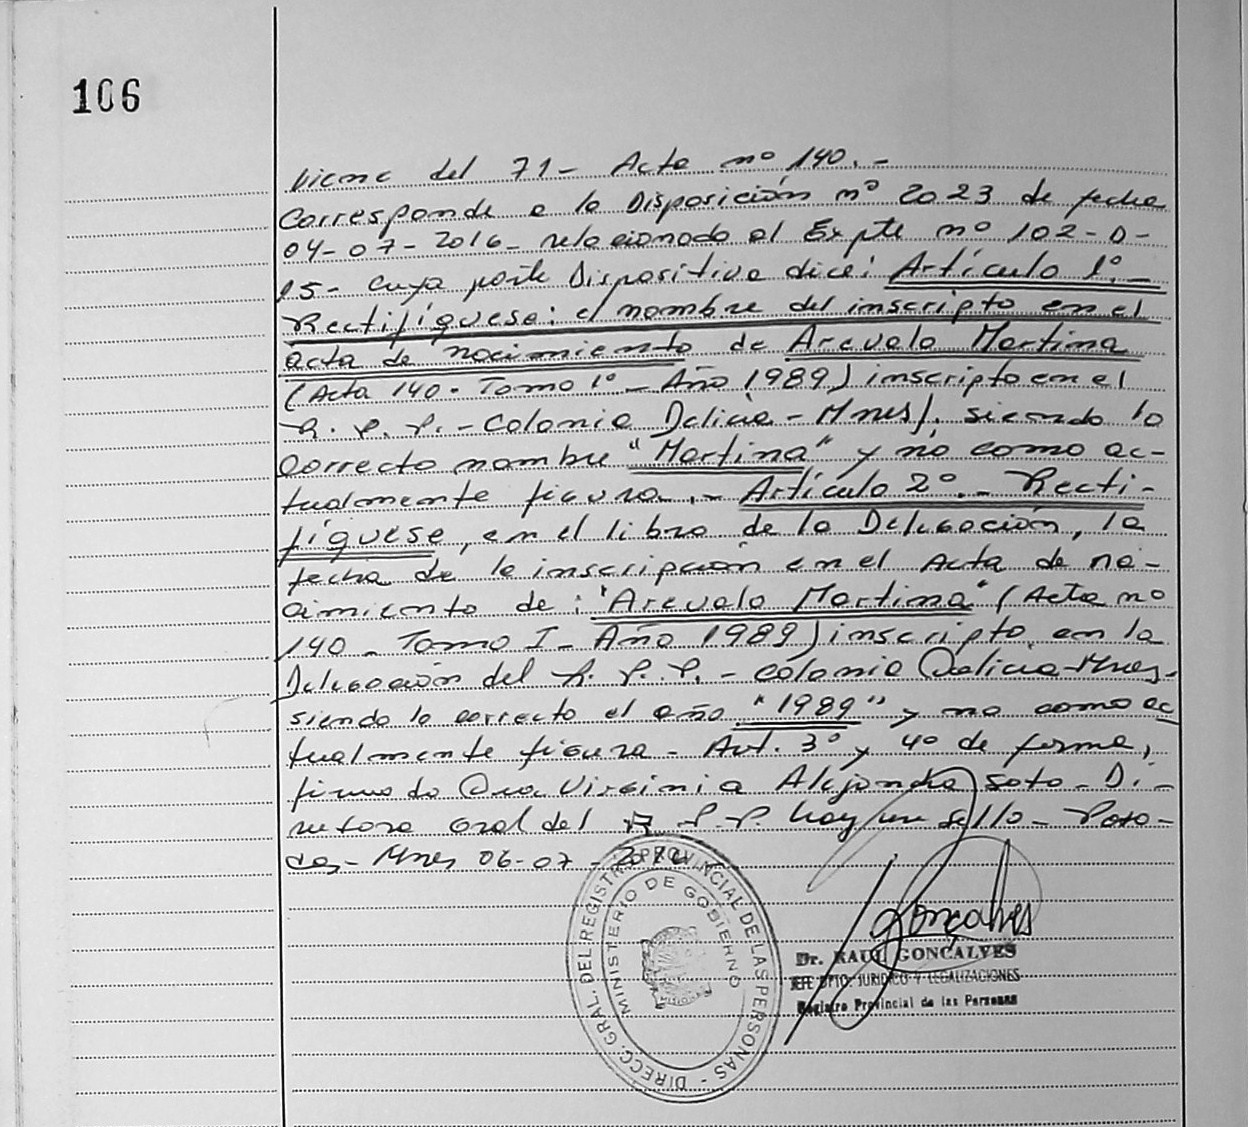 106
Viene del 71- Acta nº 140.-
Corresponde a la Disposición nº 2023 de fecha
04-07-2016- relacionado al Expte nº 102-D-
15- cuya parte Dispositiva dice: Artículo 1º.-
Rectifíquese: el nombre del inscripto en el
acta de nacimiento de Arevalo Martina
(Acta 140- Tomo 1º- Año 1989) inscripto en el
R. P. P.- Colonia Delicia- Mnes). siendo lo
correcto nombre "Martina" y no como ac-
tualmente figura.- Artículo 2º.- Recti-
fíquese, en el libro de la Delegación, la
fecha de la inscripción en el Acta de na-
cimiento de: "Arevalo Martina" (Acta nº
140- Tomo I- Año 1989) inscripto en la
Delegación del R. P. P.- Colonia Delicia-Mnes-
siendo lo correcto el año "1989" y no como ac
tualmente figura- Art. 3º y 4º de forma,
firmado Dra. Virginia Alejandra Soto- Di-
rectora Gral del R. P. P. hay un sello- Posa-
das- Mnes 06-07-2016
DIRECC. GRAL. DEL REGISTRO PROVINCIAL DE LAS PERSONAS -
MINISTERIO DE GOBIERNO
MISIONES
Goncalves
Dr. RAUL GONCALVES
JEFE DPTO. JURIDICO Y LEGALIZACIONES
Registro Provincial de las Personas